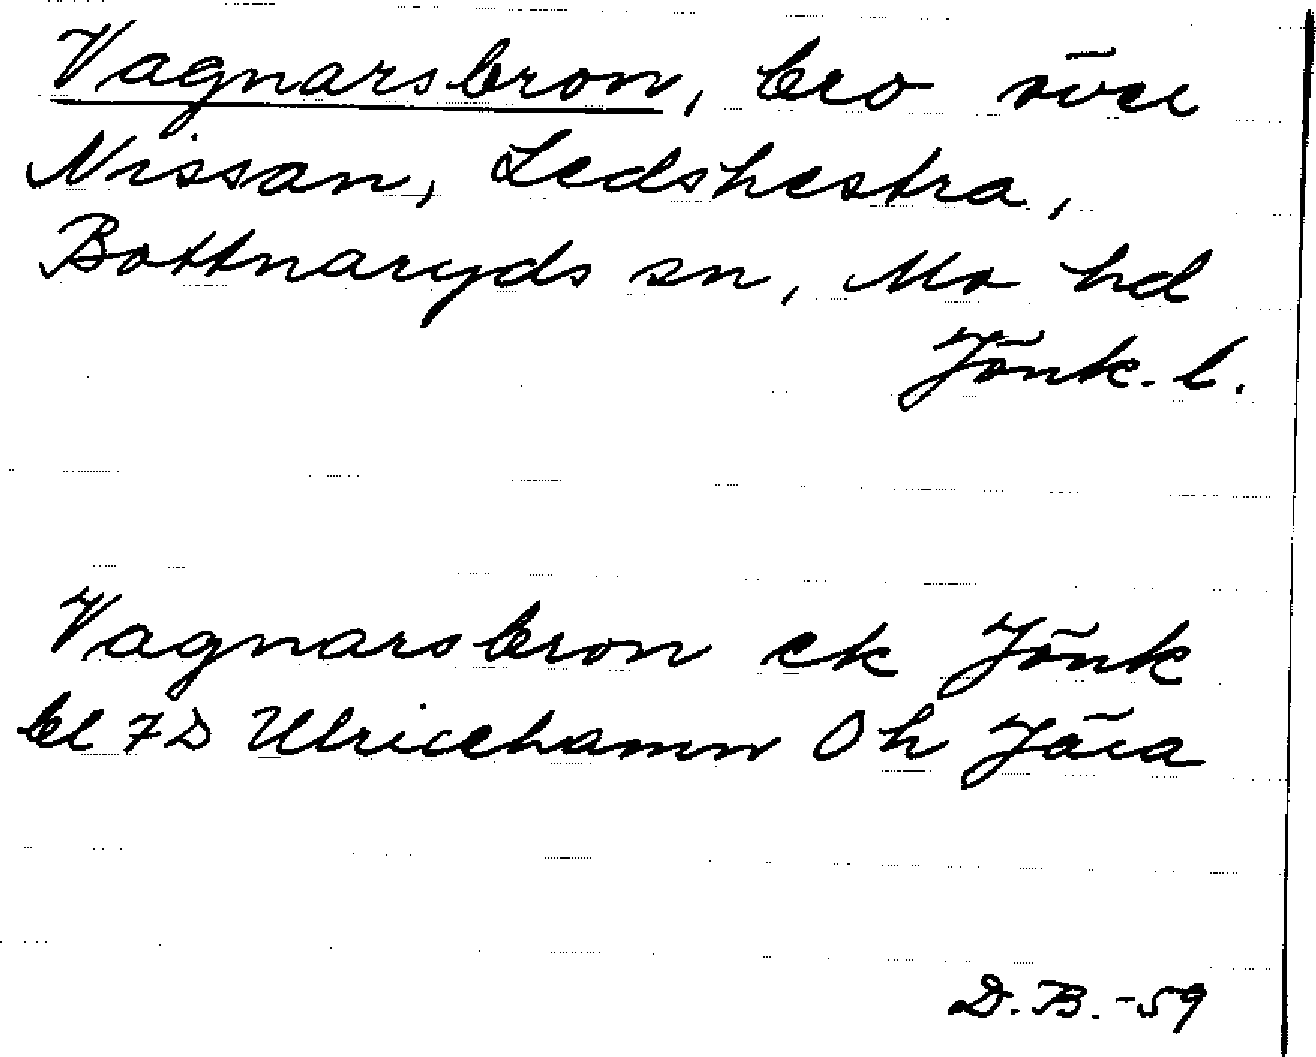 Vagnarsbron, bro över
Nissan, Ledshestra,
Bottnaryds sn, Mo hd
Jönk. l.
Vagnarsbron ek Jönk
bl 7D Ulricehamn Oh Jära
D. B. -59